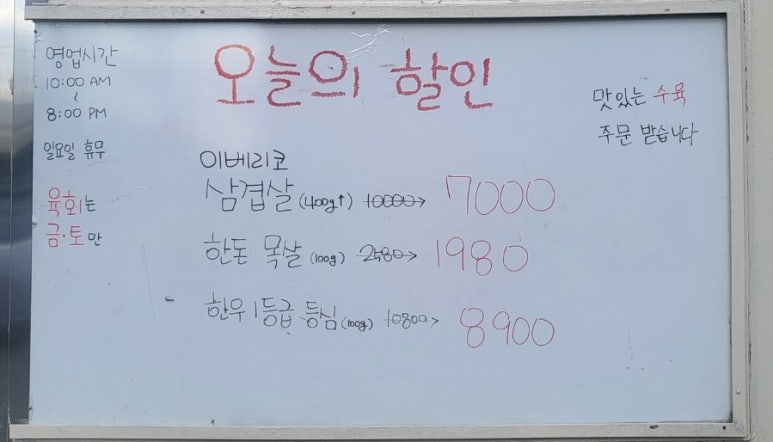 영업시간
10:00 AM
~
8:00 PM
일요일 휴무
육회는
금·토만
오늘의 할인
이베리코
삼겹살 (400g↑) 10000→ 7000
한돈 목살 (100g) 2480→ 1980
한우 1등급 등심 (100g) 10800→ 8900
맛있는 수육
주문 받습니다